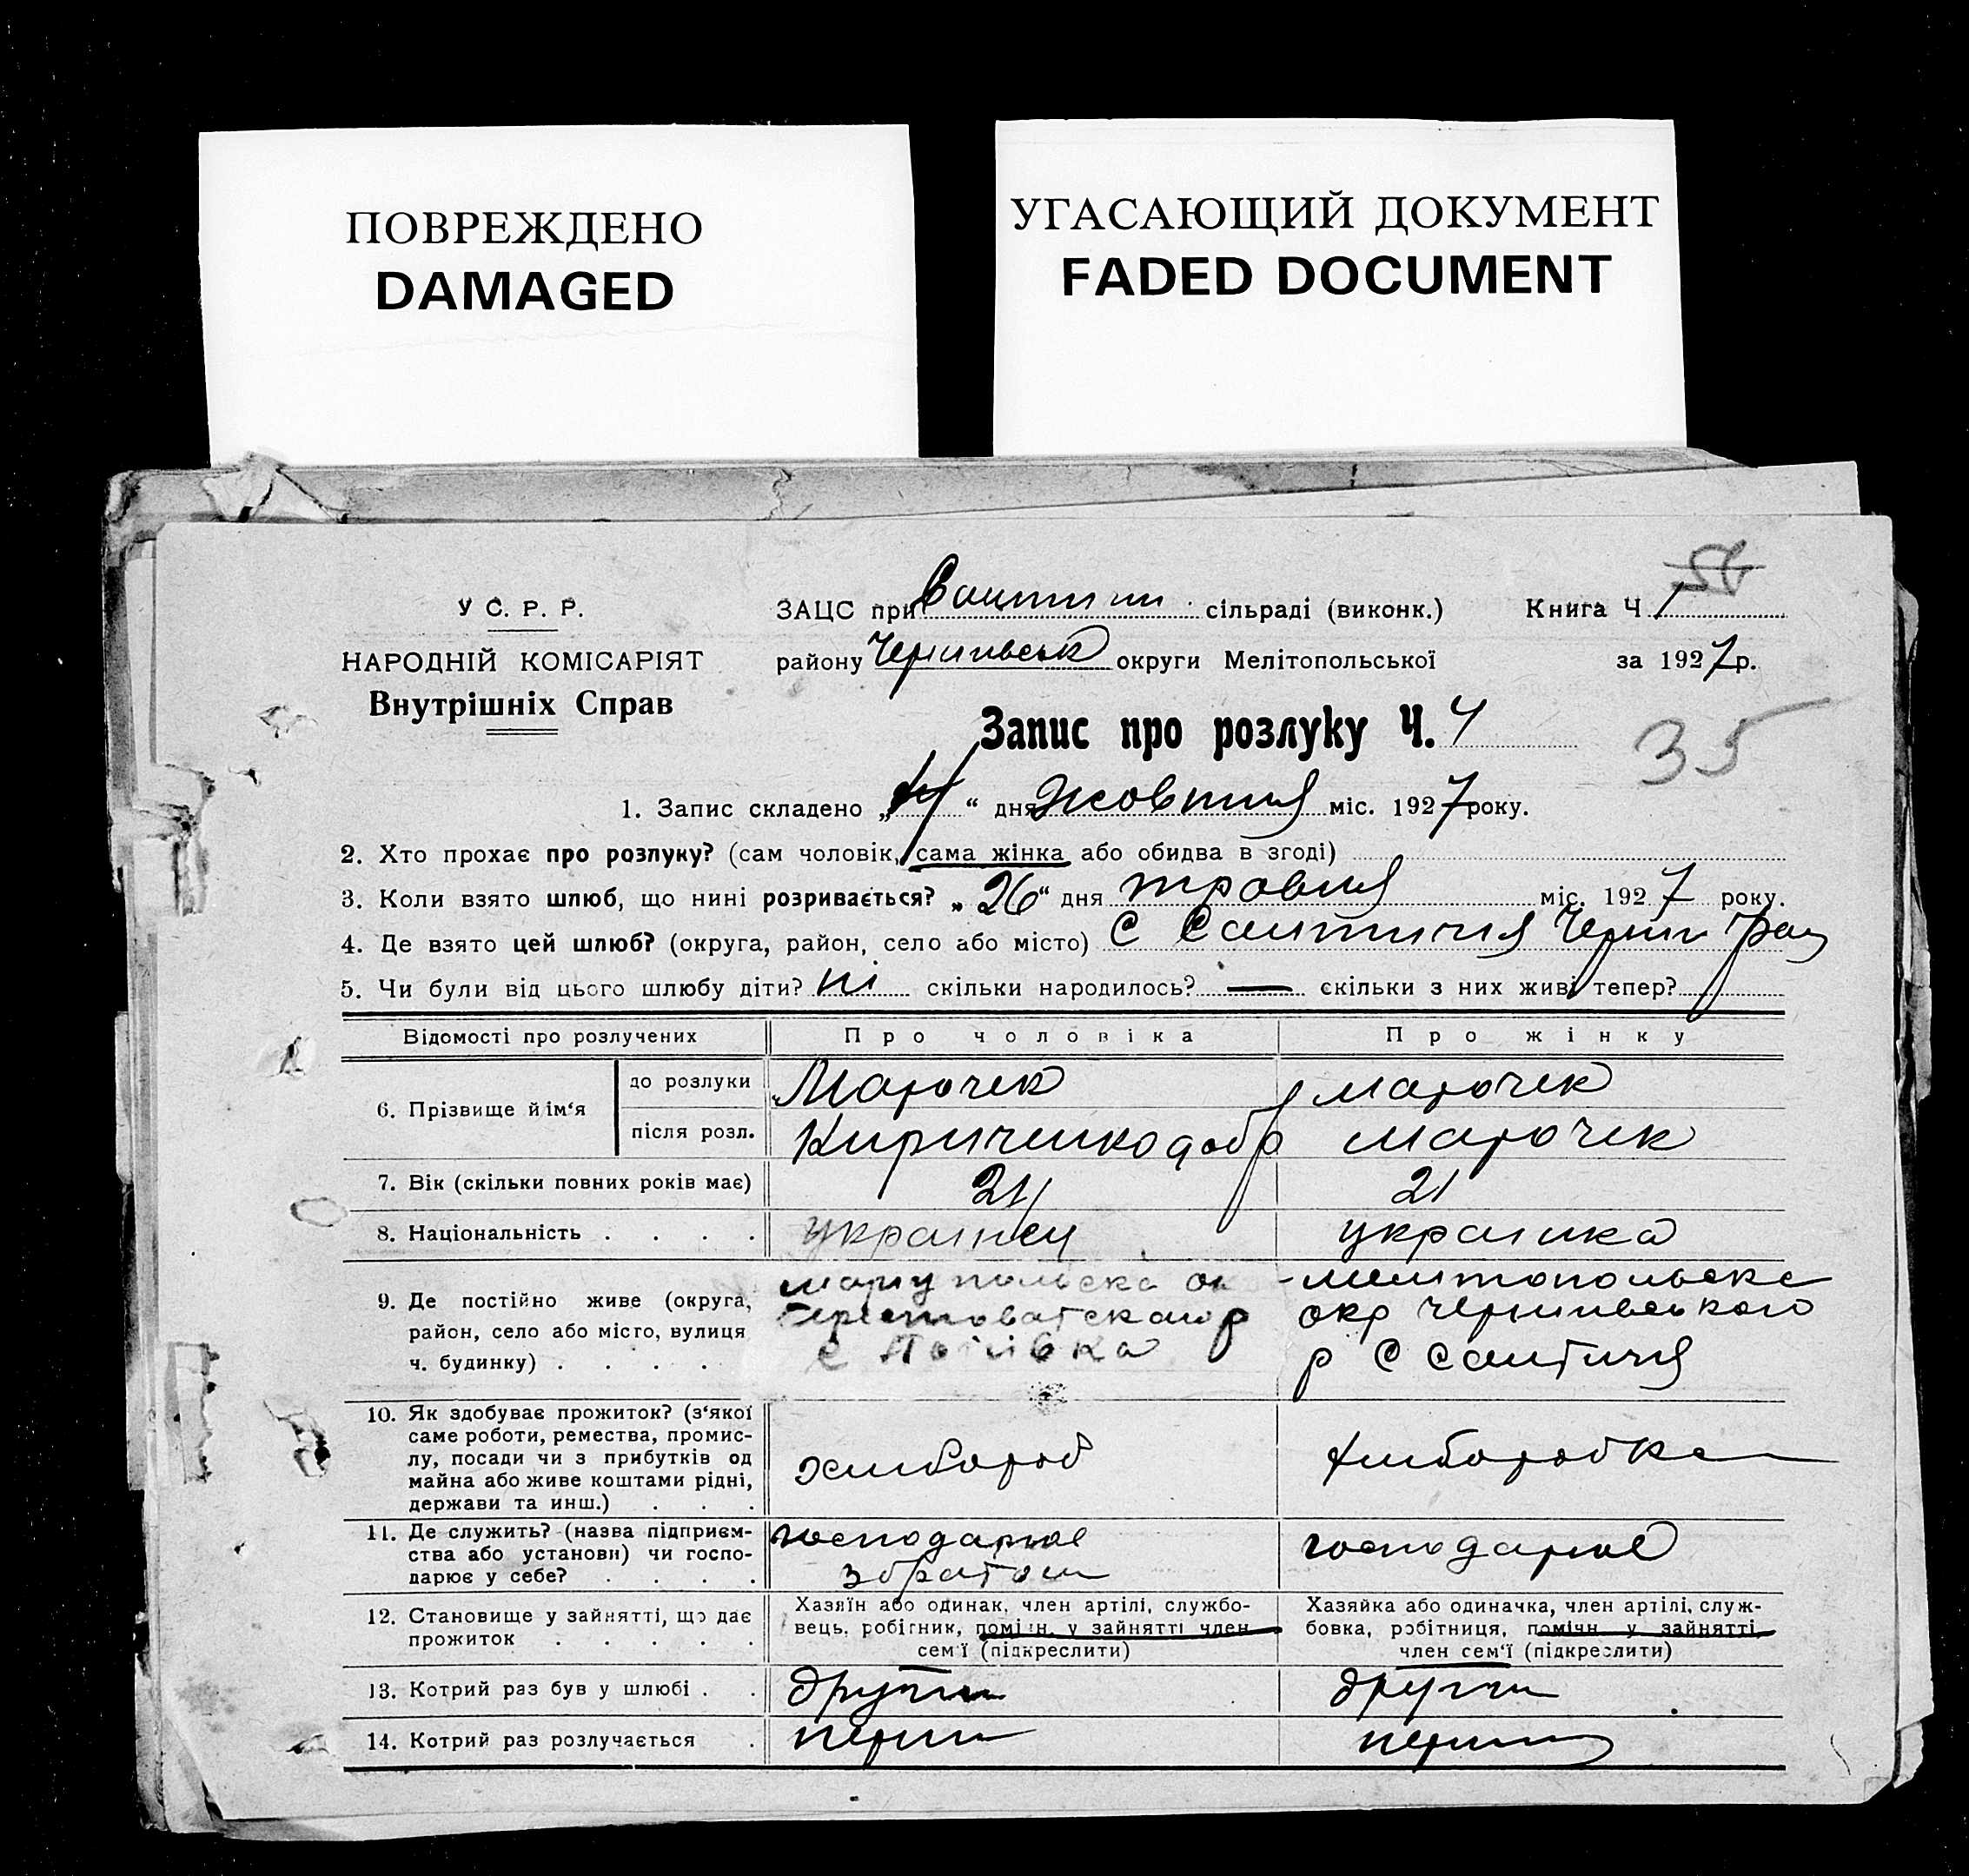 ПОВРЕЖДЕНО
DAMAGED
УГАСАЮЩИЙ ДОКУМЕНТ
FADED DOCUMENT
56
У С. Р. Р.
НАРОДНІЙ КОМІСАРІЯТ
Внутрішніх Справ
ЗАЦС при сільраді (виконк.) Книга Ч 1
району Чернигвськ округи Мелітопольської за 1927 р.
Запис про розлуку Ч. 4
35
1. Запис складено „ “ дня жовтня міс. 1927 року.
2. Хто прохає про розлуку? (сам чоловік, сама жінка або обидва в згоді)
3. Коли взято шлюб, що нині розривається? „26“ дня травня міс. 1927 року.
4. Де взято цей шлюб? (округа, район, село або місто) С Салтичия Черниг рай
5. Чи були від цього шлюбу діти? ні скільки народилось? — скільки з них живі тепер?
Відомості про розлучених Про чоловіка Про жінку
6. Прізвище й ім‘я
до розлуки Марочек марочек
після розл. Кириченко добр марочек
7. Вік (скільки повних років має) 21 21
8. Національність . . . . українец українка
9. Де постійно живе (округа, район, село або місто, вулиця ч. будинку) . . . .
маріупольска ок
р
с
мелитопольске
окр чернигвського
р с салтичия
10. Як здобуває прожиток? (з‘якої
саме роботи, ремества, промис-
лу, посади чи з прибутків од
майна або живе коштами рідні,
держави та инш.) . . .
хлибороб хлиборобка
11. Де служить? (назва підприєм-
ства або установи) чи госпо-
дарює у себе? . . . .
господарює
з братом
господарює
12. Становище у зайнятті, що дає
прожиток . . . . .
Хазяїн або одинак, член артілі, службо-
вець, робітник, поміщн. у зайнятті член
сем‘ї (підкреслити)
Хазяйка або одиначка, член артілі, служ-
бовка, робітниця, помічн. у зайнятті,
член сем‘ї (підкреслити)
13. Котрий раз був у шлюбі . . други други
14. Котрий раз розлучається . перши перши